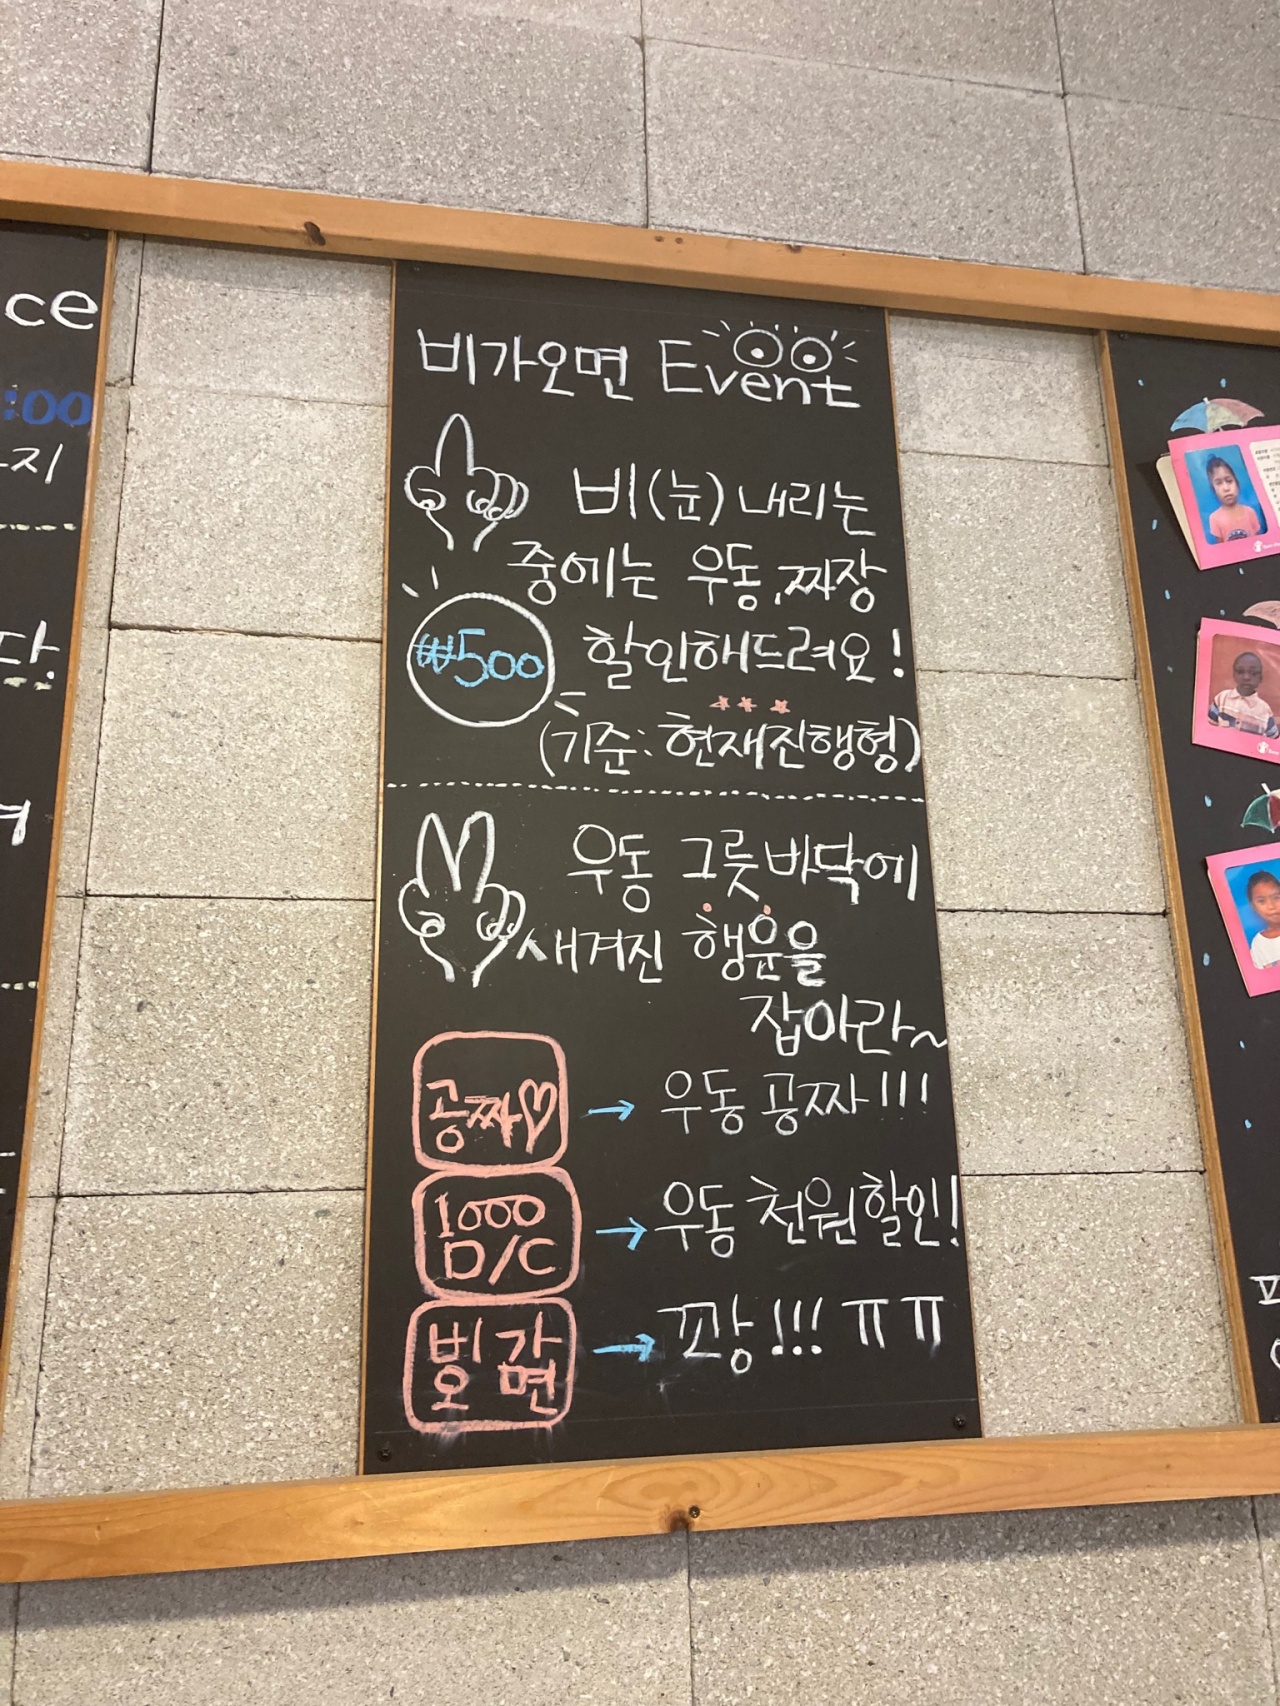 ce
:00
지
다.
비가오면 Event
비(눈) 내리는
중에는 우동, 짜장
₩500 할인해드려요!
(기준: 현재진행형)
우동 그릇바닥에
새겨진 행운을
잡아라~
공짜♡ → 우동 공짜!!!
1000 D/C → 우동 천원할인!
비가오면 → 꽝!!! ㅠㅠ